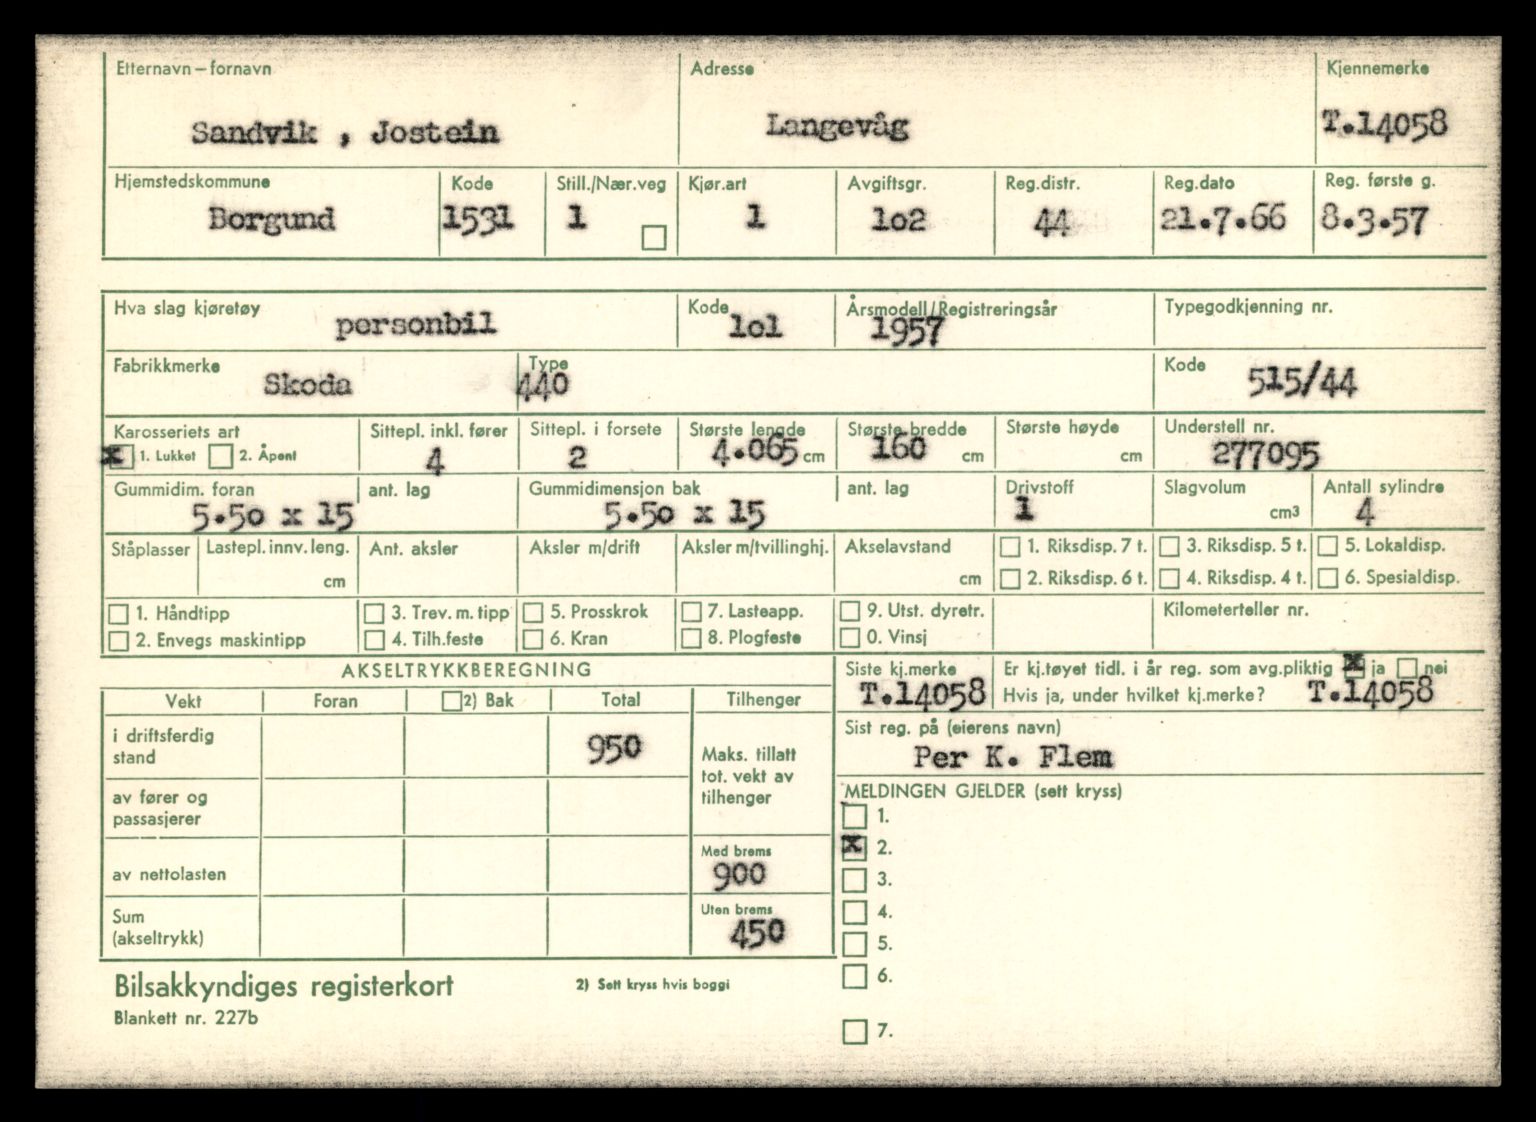 Etternavn – fornavn Adresse Kjennemerke
Sandvik , Jostein Langevåg T.14058
Hjemstedskommune Kode Still./Nær.veg Kjør.art Avgiftsgr. Reg.distr. Reg.dato Reg. første g.
Borgund 1531 1 1 1o2 44 21.7.66 8.3.57
Hva slag kjøretøy Kode Årsmodell/Registreringsår Typegodkjenning nr.
personbil 1o1 1957
Fabrikkmerke Type Kode
Skoda 440 515/44
Karosseriets art Sittepl. inkl. fører Sittepl. i forsete Største lengde Største bredde Største høyde Understell nr.
x 1. Lukket 2. Åpent 4 2 4.065 cm 160 cm cm 277095
Gummidim. foran ant. lag Gummidimensjon bak ant. lag Drivstoff Slagvolum Antall sylindre
5.5o x 15 5.5o x 15 1 cm3 4
Ståplasser Lastepl. innv. leng. Ant. aksler Aksler m/drift Aksler m/tvillinghj. Akselavstand 1. Riksdisp. 7 t. 3. Riksdisp. 5 t. 5. Lokaldisp.
cm cm 2. Riksdisp. 6 t. 4. Riksdisp. 4 t. 6. Spesialdisp.
1. Håndtipp 3. Trev. m. tipp 5. Prosskrok 7. Lasteapp. 9. Utst. dyretr. Kilometerteller nr.
2. Envegs maskintipp 4. Tilh.feste 6. Kran 8. Plogfeste 0. Vinsj
AKSELTRYKKBEREGNING
Siste kj.merke Er kj.tøyet tidl. i år reg. som avg.pliktig x ja nei
T.14058 Hvis ja, under hvilket kj.merke? T.14058
Vekt Foran 2) Bak Total Tilhenger
Sist reg. på (eierens navn)
Per K. Flem
i driftsferdig
stand 950
Maks. tillatt
tot. vekt av
tilhenger
av fører og
passasjerer
MELDINGEN GJELDER (sett kryss)
1.
x 2.
3.
4.
5.
6.
7.
av nettolasten
Med brems
900
Sum
(akseltrykk)
Uten brems
450
Bilsakkyndiges registerkort 2) Sett kryss hvis boggi
Blankett nr. 227b